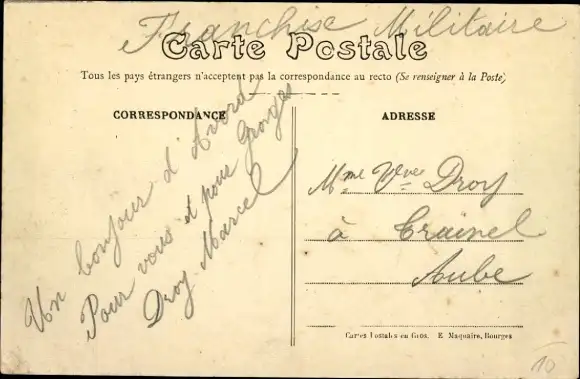 Franchise Militaire
Carte Postale
Tous les pays étrangers n'acceptent pas la correspondance au recto (Se renseigner à la Poste)
CORRESPONDANCE
Un bonjour d'Avord
Pour vous et pour Georges
Droy Marcel
ADRESSE
Mme Vve Droy
à Trainel
Aube
Cartes Postales en Gros. E. Maquaire, Bourges
10